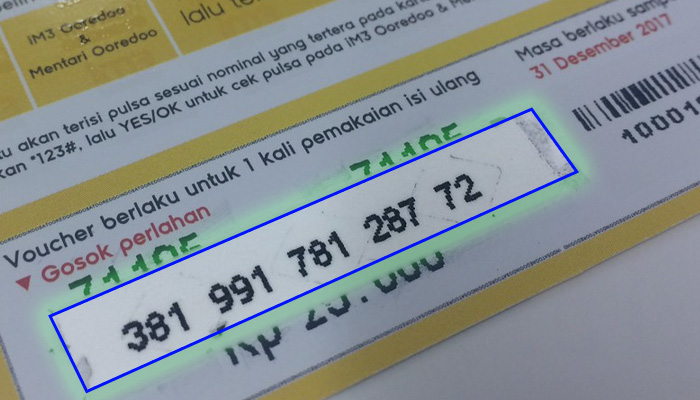 iM3 Ooredoo
&
Mentari Ooredoo
lalu
akan terisi pulsa sesuai nominal yang tertera pada
*123#, lalu YES/OK untuk cek pulsa pada iM3 Ooredoo &
Masa berlaku
31 Desember 2017
Voucher berlaku untuk 1 kali pemakaian isi ulang
▼ Gosok perlahan
381 991 781 287 72
Rp